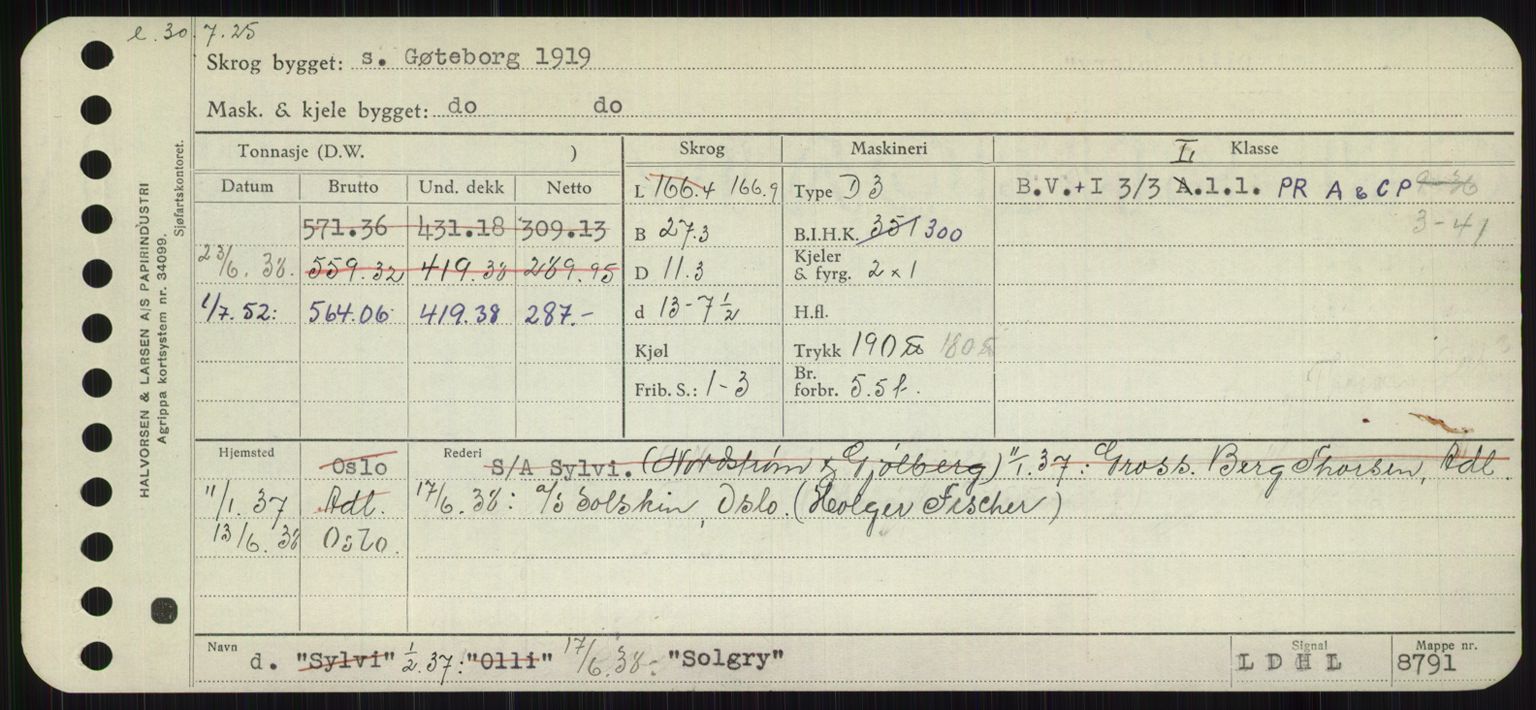 e. 30.7.25
Skrog bygget: s. Gøteborg 1919
Mask. & kjele bygget: do do
HALVORSEN & LARSEN A/S PAPIRINDUSTRI
Agrippa kortsystem nr. 34099.
Sjøfartskontoret.
Tonnasje (D.W. ) Skrog Maskineri I, Klasse
Datum Brutto Und. dekk Netto L 166.4 166.9 Type D 3 B.V.+I 3/3 A.1.1. PR A & CP 9-36
571.36 431.18 309.13 B 27.3 B.I.H.K. 351 300 3-41
23/6. 38. 559.32 419.38 289.95 D 11.3 Kjeler & fyrg. 2 x 1
1/7. 52: 564.06 419.38 287.- d 13-7½ H.fl.
Kjøl Trykk 190 180
Frib. S.: 1-3 Br. forbr. 5.5 t.
Hjemsted Oslo Rederi S/A Sylvi. (Nordstrøm & Gjølberg) 11/1. 37: Gross. Berg Thorsen, Adl.
11/1. 37 Adl. 17/6. 38: a/s Solskin, Oslo. (Holger Fischer)
13/6. 38 Oslo.
Navn d. "Sylvi" ½.37: "Olli" 17/6.38: "Solgry" Signal LDHL Mappe nr. 8791